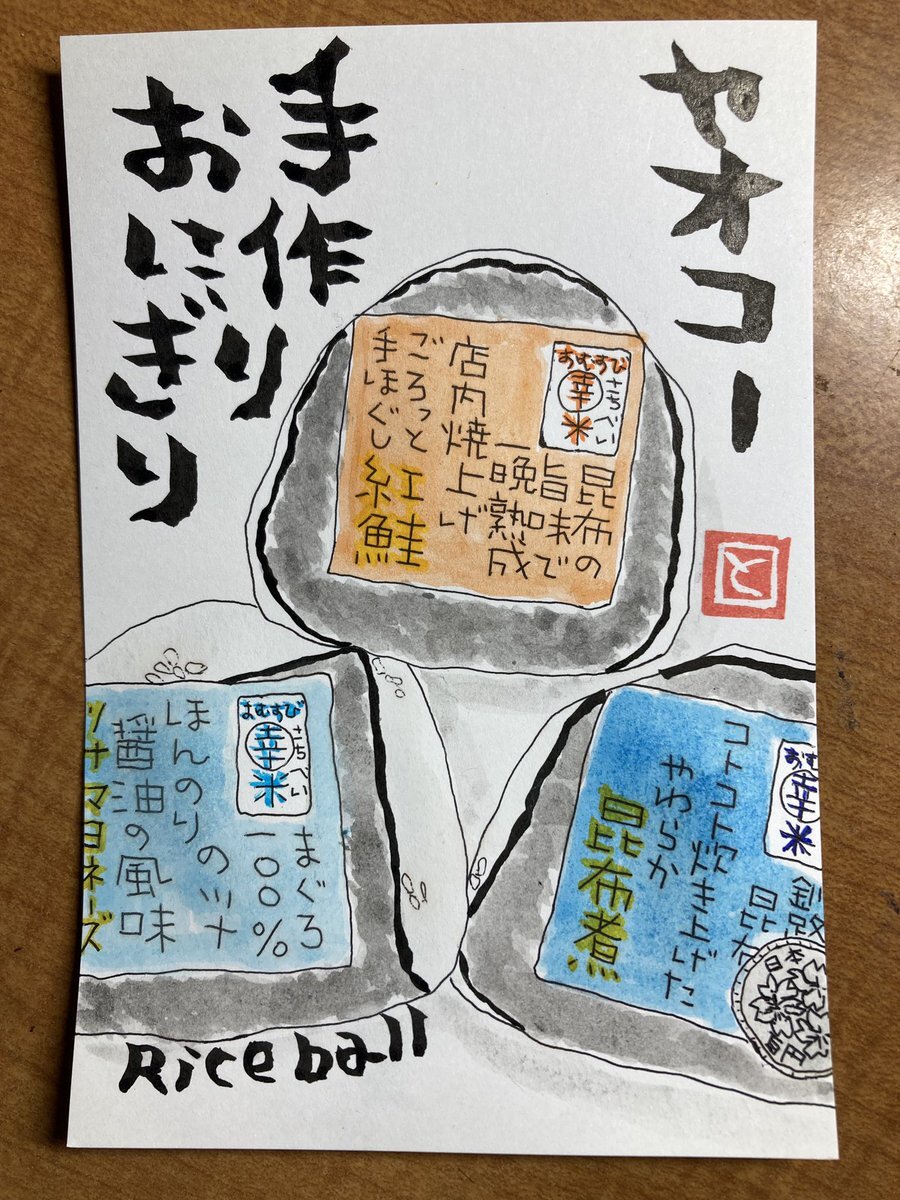 ヤオコー
手作り
おにぎり
おむすび
さちべい
幸米
昆布の
旨味で
一晩熟成
店内焼上げ
ごろっと
手ほぐし
紅鮭
と
おむすび
さちべい
幸米
まぐろ
一〇〇%
のツナ
ほんのり
醤油の風味
ツナマヨネーズ
おむ
幸米
昆布
コトコト炊き上げた
やわらか
昆布煮
Rice ball